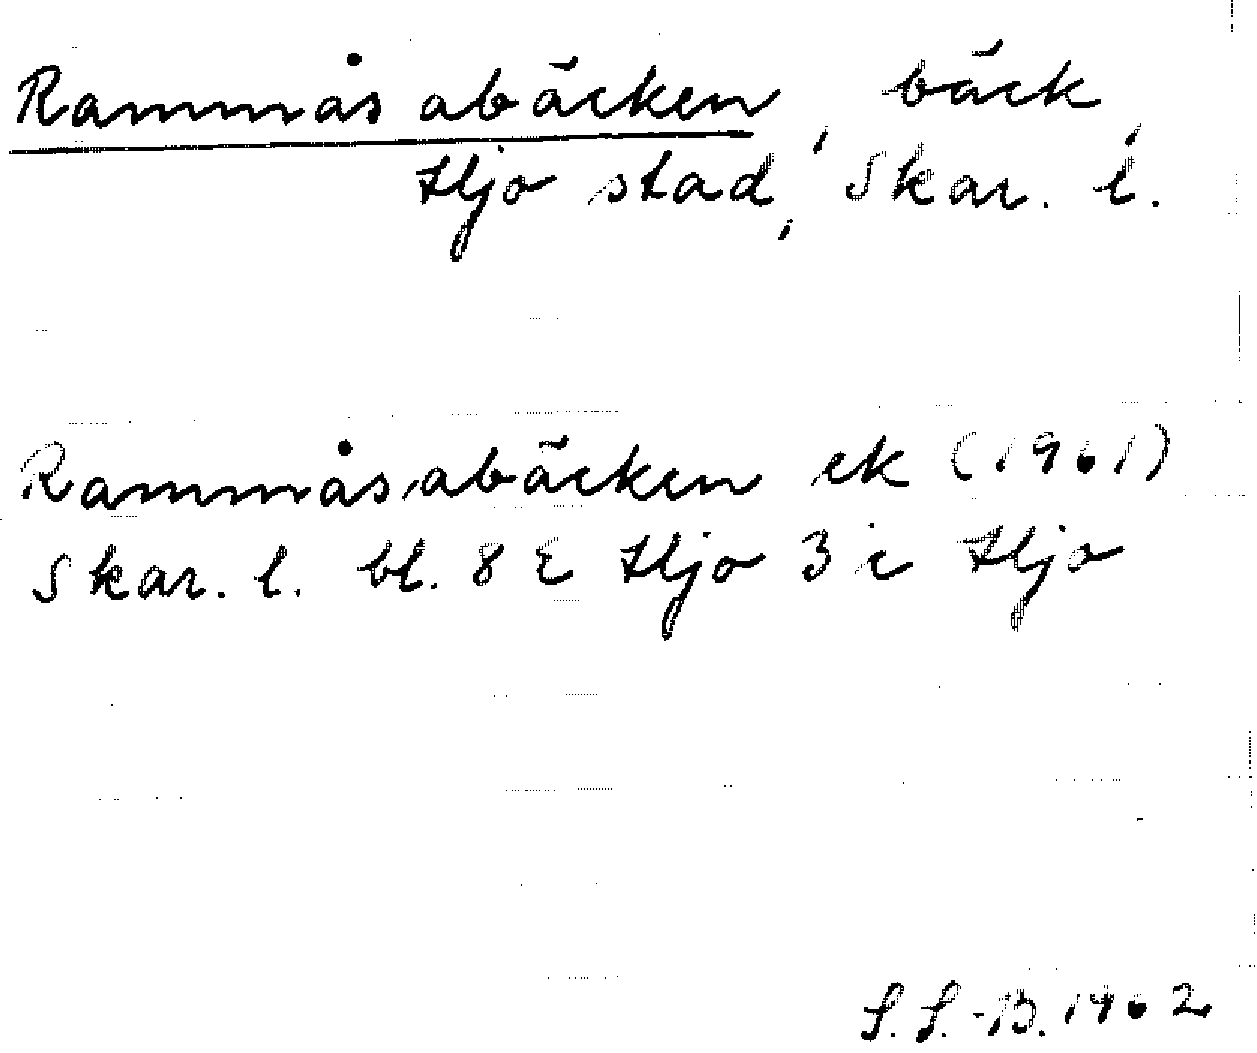 Rammåsabäcken, bäck,
Hjo stad, Skar. l.
Rammåsabäcken ek (1961)
Skar. l. bl. 8 E Hjo 3 c Hjo
S. S.-B. 1962